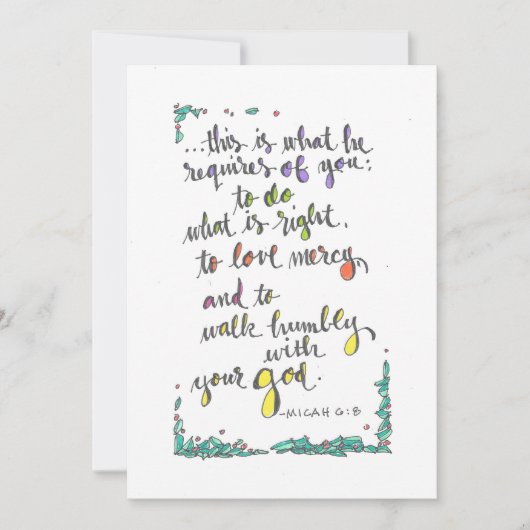 ...this is what he
requires of you:
to do
what is right,
to love mercy,
and to
walk humbly
with
your god.
-MICAH 6:8